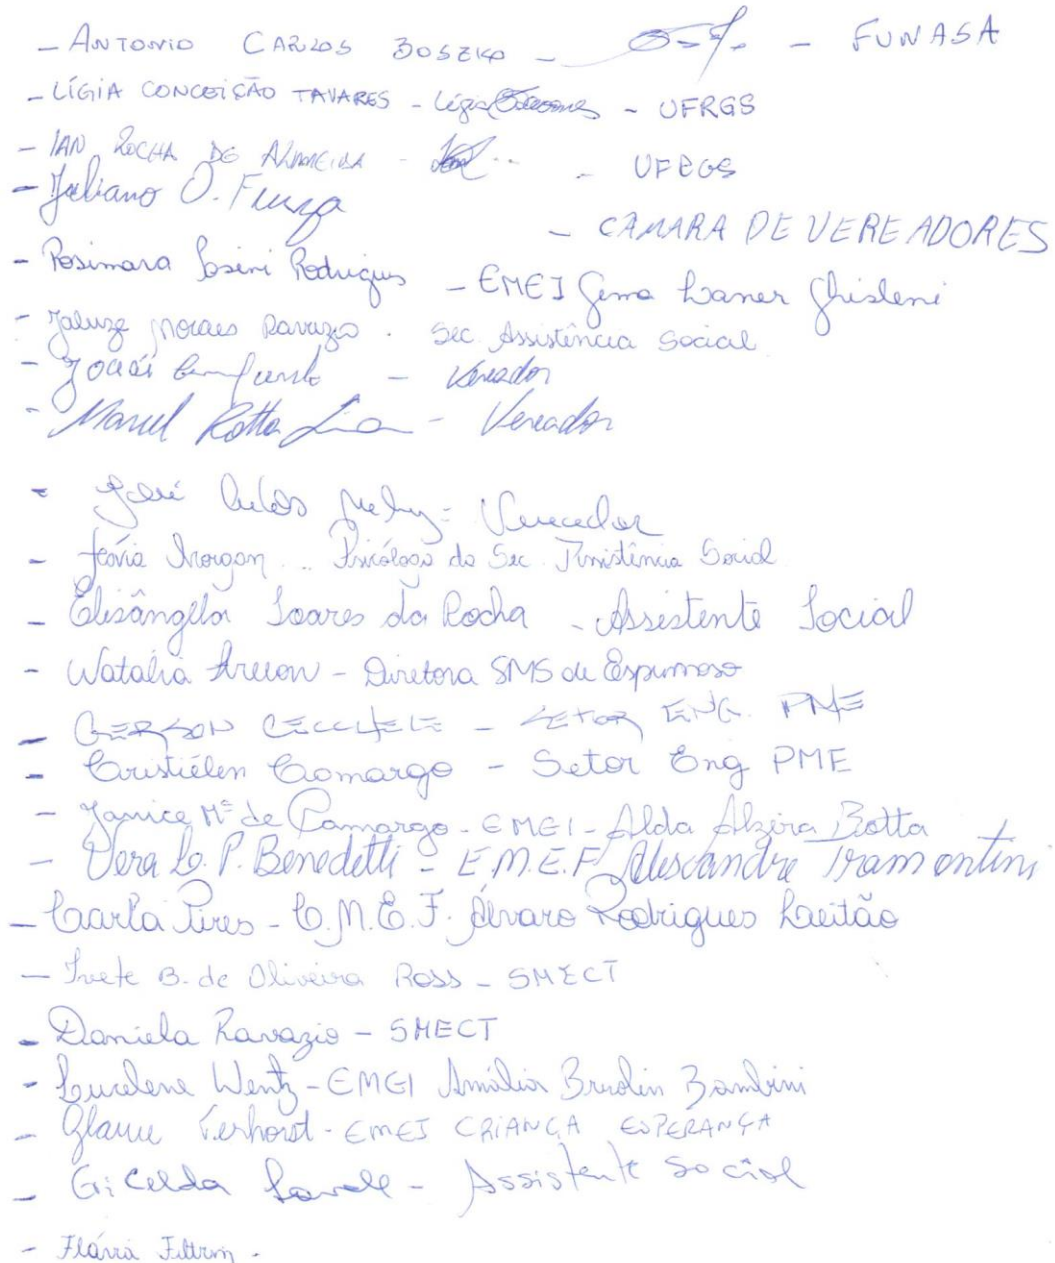 - ANTONIO CARLOS BOSZKO - - FUNASA
- LÍGIA CONCEIÇÃO TAVARES - Lígia Tavares - UFRGS
- IAN ROCHA DE ALMEIDA - - UFRGS
- Juliano O. Fiuza
- CÂMARA DE VEREADORES
- Rosimara Rodrigues - EMEI Gema Laner Ghisleni
- Jaluze Moraes Ravazio . Sec. Assistência Social
- - Vereador
- Marcel Rotta - Vereador
- José - Vereador
- Psicóloga da Sec. Assistência Social
- Elisângela Soares da Rocha - Assistente Social
- Natalia - Diretora SMS de Espumoso
- GERSON - SETOR ENG. PME
- Cristiélen Camargo - Setor Eng PME
- Janice Mª de Camargo - EMEI - Alda Alzira Botta
- Vera L. P. Benedetti - E.M.E.F Alexandre Tramontini
- Carla Pires - E.M.E.F. Álvaro Rodrigues Leitão
- Ivete B. de Oliveira Ross - SMECT
- Daniela Ravazio - SMECT
- Lucelene Wentz - EMEI Amália Bambini
- EMEI CRIANÇA ESPERANÇA
- Gicelda - Assistente Social
- Flávia